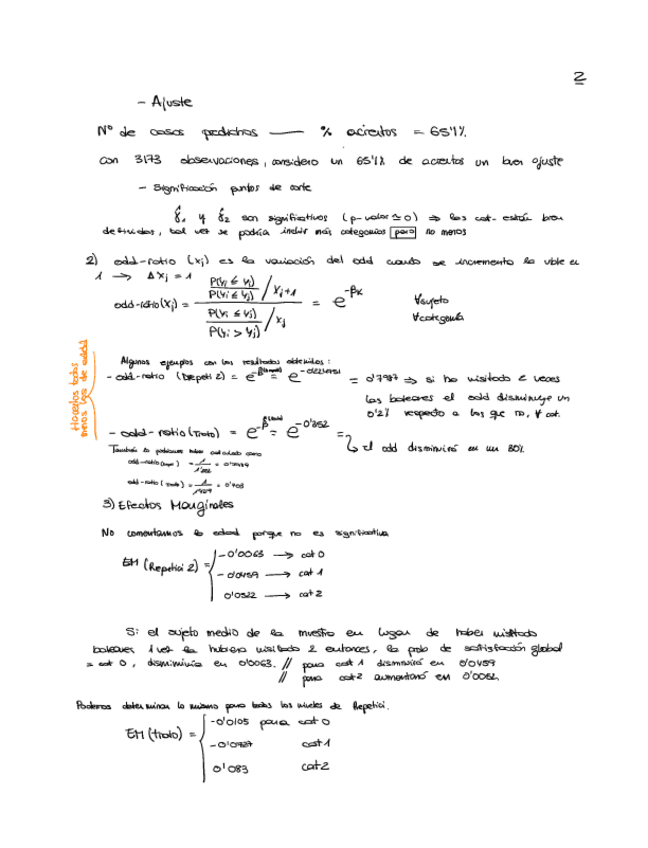 2
- Ajuste
Nº de casos predichos — % aciertos = 65'1%
con 3173 observaciones, considero un 65'1% de aciertos un buen ajuste
- Significación puntos de corte
γ̂₁ y γ̂₂ son significativos (p-valor ≃ 0) ⇒ las cat. están bien
definidas, tal vez se podría incluir más categorías pero no menos
2) odd-ratio (xj) es la variación del odd cuando se incrementa la vble en
1 → ΔXj = 1
odd-ratio(xj) = P(Yi ≤ Yj) / P(Yi ≤ Yj) / Xj+1 / P(Yi ≤ Yj) / P(Yi > Yj) / Xj = e^-βk ∀sujeto
∀categoría
Hacerlos todos
menos los de edad
Algunos ejemplos con los resultados obtenidos:
- odd-ratio (Repeti 2) = = 0'7987 ⇒ si ha visitado 2 veces
las baleares el odd disminuye un
0'2% respecto a los que no, ∀ cat.
- odd-ratio (Trato) = = e^-0'352 =
↳ el odd disminuirá en un 30%
También lo podríamos haber calculado como
3) Efectos Marginales
No comentamos la edad porque no es significativa
EM (Repetici 2) = -0'0063 → cat 0
-0'0459 → cat 1
0'0522 → cat 2
Si el sujeto medio de la muestra en lugar de haber visitado
baleares 1 vez las hubiera visitado 2 entonces, la prob de satisfacción global
= cat 0, disminuiría en 0'0063. // para cat 1 disminuirá en 0'0459
// para cat 2 aumentará en 0'0052
Podemos determinar lo mismo para todos los niveles de Repetici.
EM (trato) = -0'0105 para cat 0
cat 1
0'083 cat 2